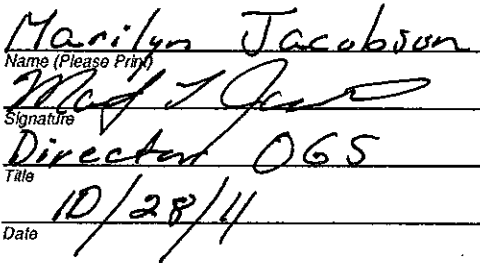 Marilyn Jacobson
Name (Please Print)
Signature
Director OGS
Title
10/28/11
Date